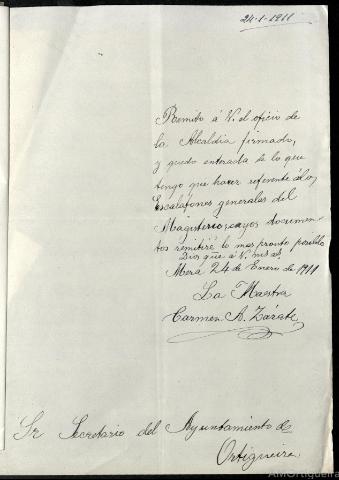 24-1-1911
Remito á V. el oficio de
la Alcaldia firmado,
y quedo enterada de lo que
tengo que hacer referente á los
Escalafones generales del
Magisterio; cuyos documen-
tos remitiré lo mas pronto posible
Dios gue á V. ms as
Mera 24 de Enero de 1911
La Maestra
Carmen A. Zárate
Sr Secretario del Ayuntamiento de
Ortigueira
AMOrtigueira